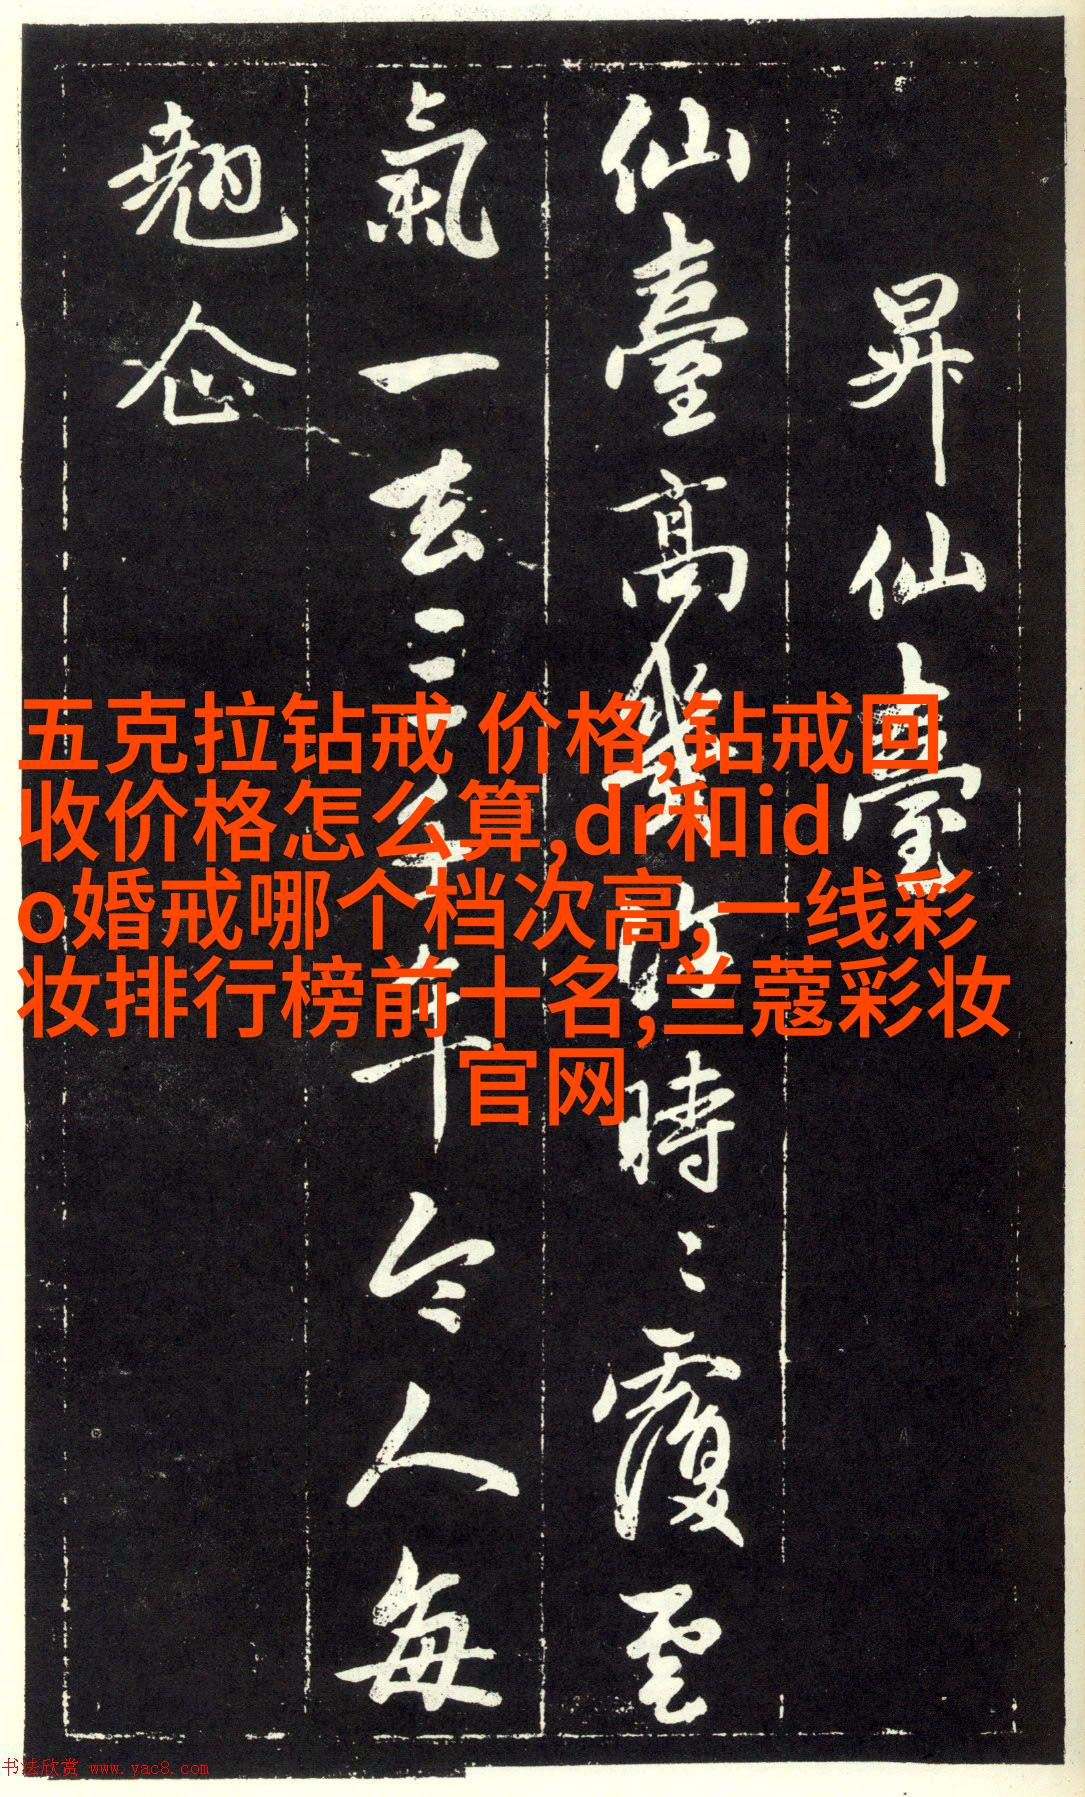 昇仙臺
仙臺高幾許時〻覆雲
氣一去三千年今人每
翹企
五克拉钻戒 价格,钻戒回
收价格怎么算,dr和id
o婚戒哪个档次高,一线彩
妆排行榜前十名,兰蔻彩妆
官网
书法欣赏 www.yac8.com